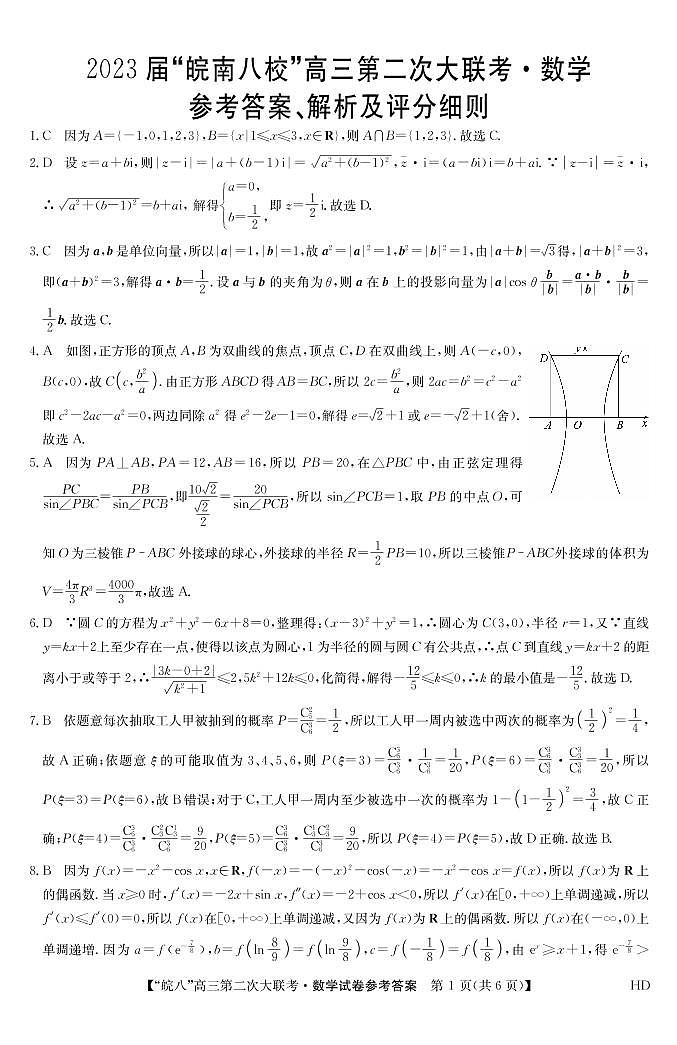 2023 届“皖南八校”高三第二次大联考·数学
参考答案、解析及评分细则
1. C 因为 A={-1,0,1,2,3},B={x|1≤x≤3,x∈R},则 A∩B={1,2,3}. 故选 C.
2. D 设 z=a+bi,则|z-i|=|a+(b-1)i|=√(a²+(b-1)²),z̄·i=(a-bi)i=b+ai. ∵|z-i|=z̄·i,
∴√(a²+(b-1)²)=b+ai, 解得{a=0, b=1/2, 即 z=1/2 i. 故选 D.
3. C 因为 a,b 是单位向量,所以|a|=1,|b|=1,故 a²=|a|²=1,b²=|b|²=1,由|a+b|=√3得,|a+b|²=3,
即(a+b)²=3,解得 a·b=1/2. 设 a 与 b 的夹角为 θ,则 a 在 b 上的投影向量为|a|cos θ b/|b|=a·b/|b|·b/|b|=
1/2 b. 故选 C.
4. A 如图,正方形的顶点 A,B 为双曲线的焦点,顶点 C,D 在双曲线上,则 A(-c,0),
B(c,0),故 C(c,b²/a). 由正方形 ABCD 得 AB=BC,所以 2c=b²/a,则 2ac=b²=c²-a²
即 c²-2ac-a²=0,两边同除 a² 得 e²-2e-1=0,解得 e=√2+1 或 e=-√2+1(舍).
故选 A.
y
D
C
A
O
B
x
5. A 因为 PA⊥AB,PA=12,AB=16,所以 PB=20,在△PBC 中,由正弦定理得
PC/sin∠PBC=PB/sin∠PCB,即10√2/(√2/2)=20/sin∠PCB,所以 sin∠PCB=1,取 PB 的中点 O,可
知 O 为三棱锥 P-ABC 外接球的球心,外接球的半径 R=1/2 PB=10,所以三棱锥P-ABC外接球的体积为
V=4π/3 R³=4000/3 π,故选 A.
6. D ∵圆 C 的方程为 x²+y²-6x+8=0,整理得:(x-3)²+y²=1,∴圆心为 C(3,0),半径 r=1,又∵直线
y=kx+2上至少存在一点,使得以该点为圆心,1 为半径的圆与圆 C 有公共点,∴点 C 到直线 y=kx+2 的距
离小于或等于 2,∴|3k-0+2|/√(k²+1)≤2,5k²+12k≤0,化简得,解得-12/5≤k≤0,∴k 的最小值是-12/5. 故选 D.
7. B 依题意每次抽取工人甲被抽到的概率 P=C₅²/C₆³=1/2,所以工人甲一周内被选中两次的概率为(1/2)²=1/4,
故 A 正确;依题意 ξ 的可能取值为 3、4、5、6,则 P(ξ=3)=C₆³/C₆³·1/C₆³=1/20,P(ξ=6)=C₆³/C₆³·C₃³/C₆³=1/20,所以
P(ξ=3)=P(ξ=6),故 B 错误;对于 C,工人甲一周内至少被选中一次的概率为 1-(1-1/2)²=3/4,故 C 正
确;P(ξ=4)=C₆³/C₆³·C₃²C₃¹/C₆³=9/20,P(ξ=5)=C₆³/C₆³·C₃¹C₃²/C₆³=9/20,所以 P(ξ=4)=P(ξ=5),故 D 正确. 故选 B.
8. B 因为 f(x)=-x²-cos x,x∈R,f(-x)=-(-x)²-cos(-x)=-x²-cos x=f(x),所以 f(x)为 R 上
的偶函数. 当 x≥0 时,f′(x)=-2x+sin x,f″(x)=-2+cos x<0,所以 f′(x)在[0,+∞)上单调递减,所以
f′(x)≤f′(0)=0,所以 f(x)在[0,+∞)上单调递减,又因为 f(x)为 R 上的偶函数. 所以 f(x)在(-∞,0)上
单调递增. 因为 a=f(e^(-7/8)),b=f(ln 8/9)=f(ln 9/8),c=f(-1/8)=f(1/8),由 eˣ≥x+1,得 e^(-7/8)>
【“皖八”高三第二次大联考·数学试卷参考答案 第 1 页(共 6 页)】 HD